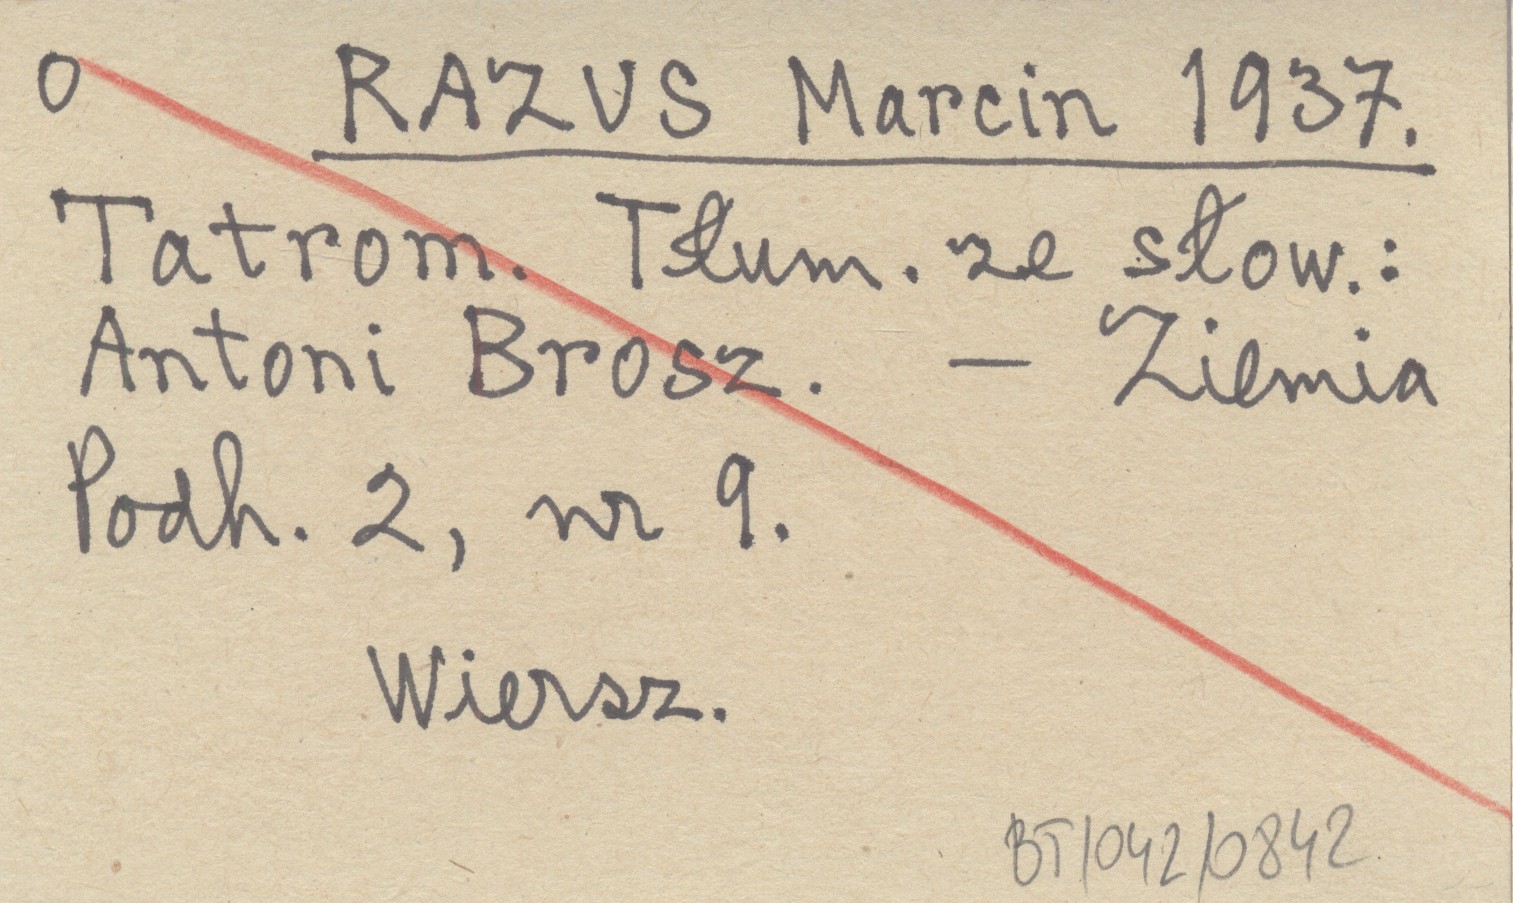 O RAZUS Marcin 1937.
Tatrom. Tłum. ze słow.:
Antoni Brosz. — Ziemia
Podh. 2, nr 9.
Wiersz.
BT/042/0842